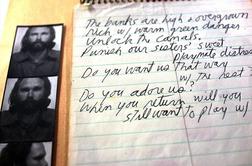 The banks are high & overgrown
rich w/ warm green danger
Unlock the canals.
Punish our sisters' sweet
playmate distress
Do you want us that way
w/ the rest?
Do you adore us?
When you return will you
still want to play w/